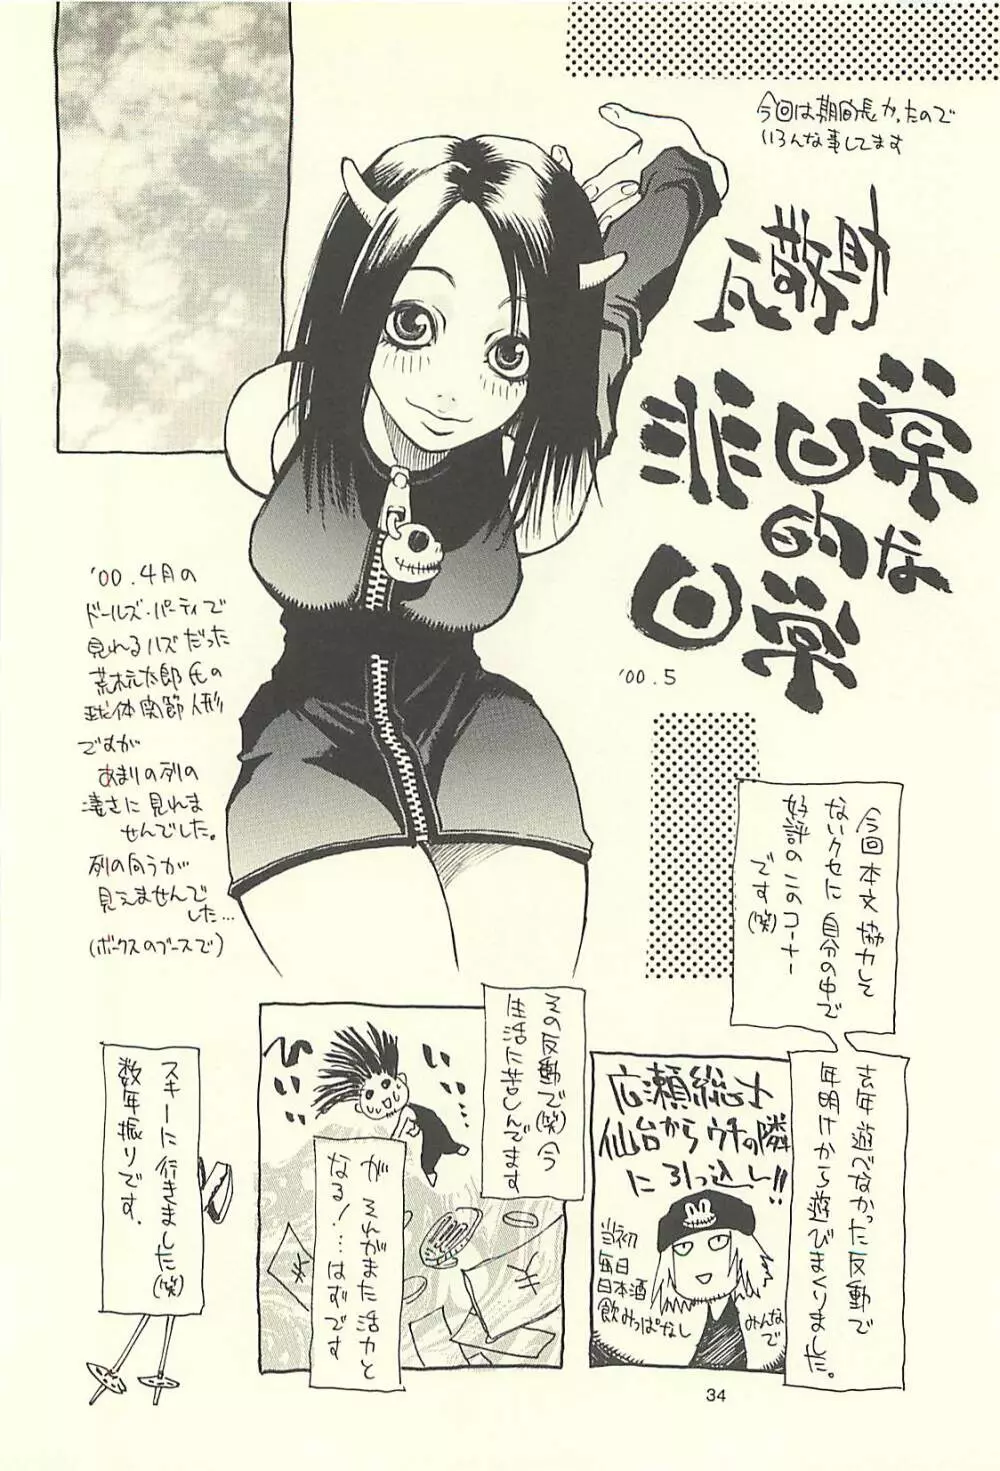 今回は期間長かったので
いろんな事してます
非日常的な日常
'00.5
'00.4月の
ドールズ・パーティで
見れるハズだった
荒木元太郎氏の
球体関節人形
ですが
あまりの列の
凄さに見れま
せんでした。
列の向うが
見えませんで
した…
(ボークスのブースで)
今回本文協力して
ないクセに自分の中で
好評のこのコーナー
です(笑)
去年遊べなかった反動で
年明けから遊びまくりました。
広瀬総士
仙台からウチの隣
に引っ込し!!
当初
毎日
日本酒
飲みっぱなし
みんな
で
その反動で(笑)今
生活に苦しんでます
が それがまた活力と
なる!…はずです
スキーに行きました(笑)
数年振りです.
34